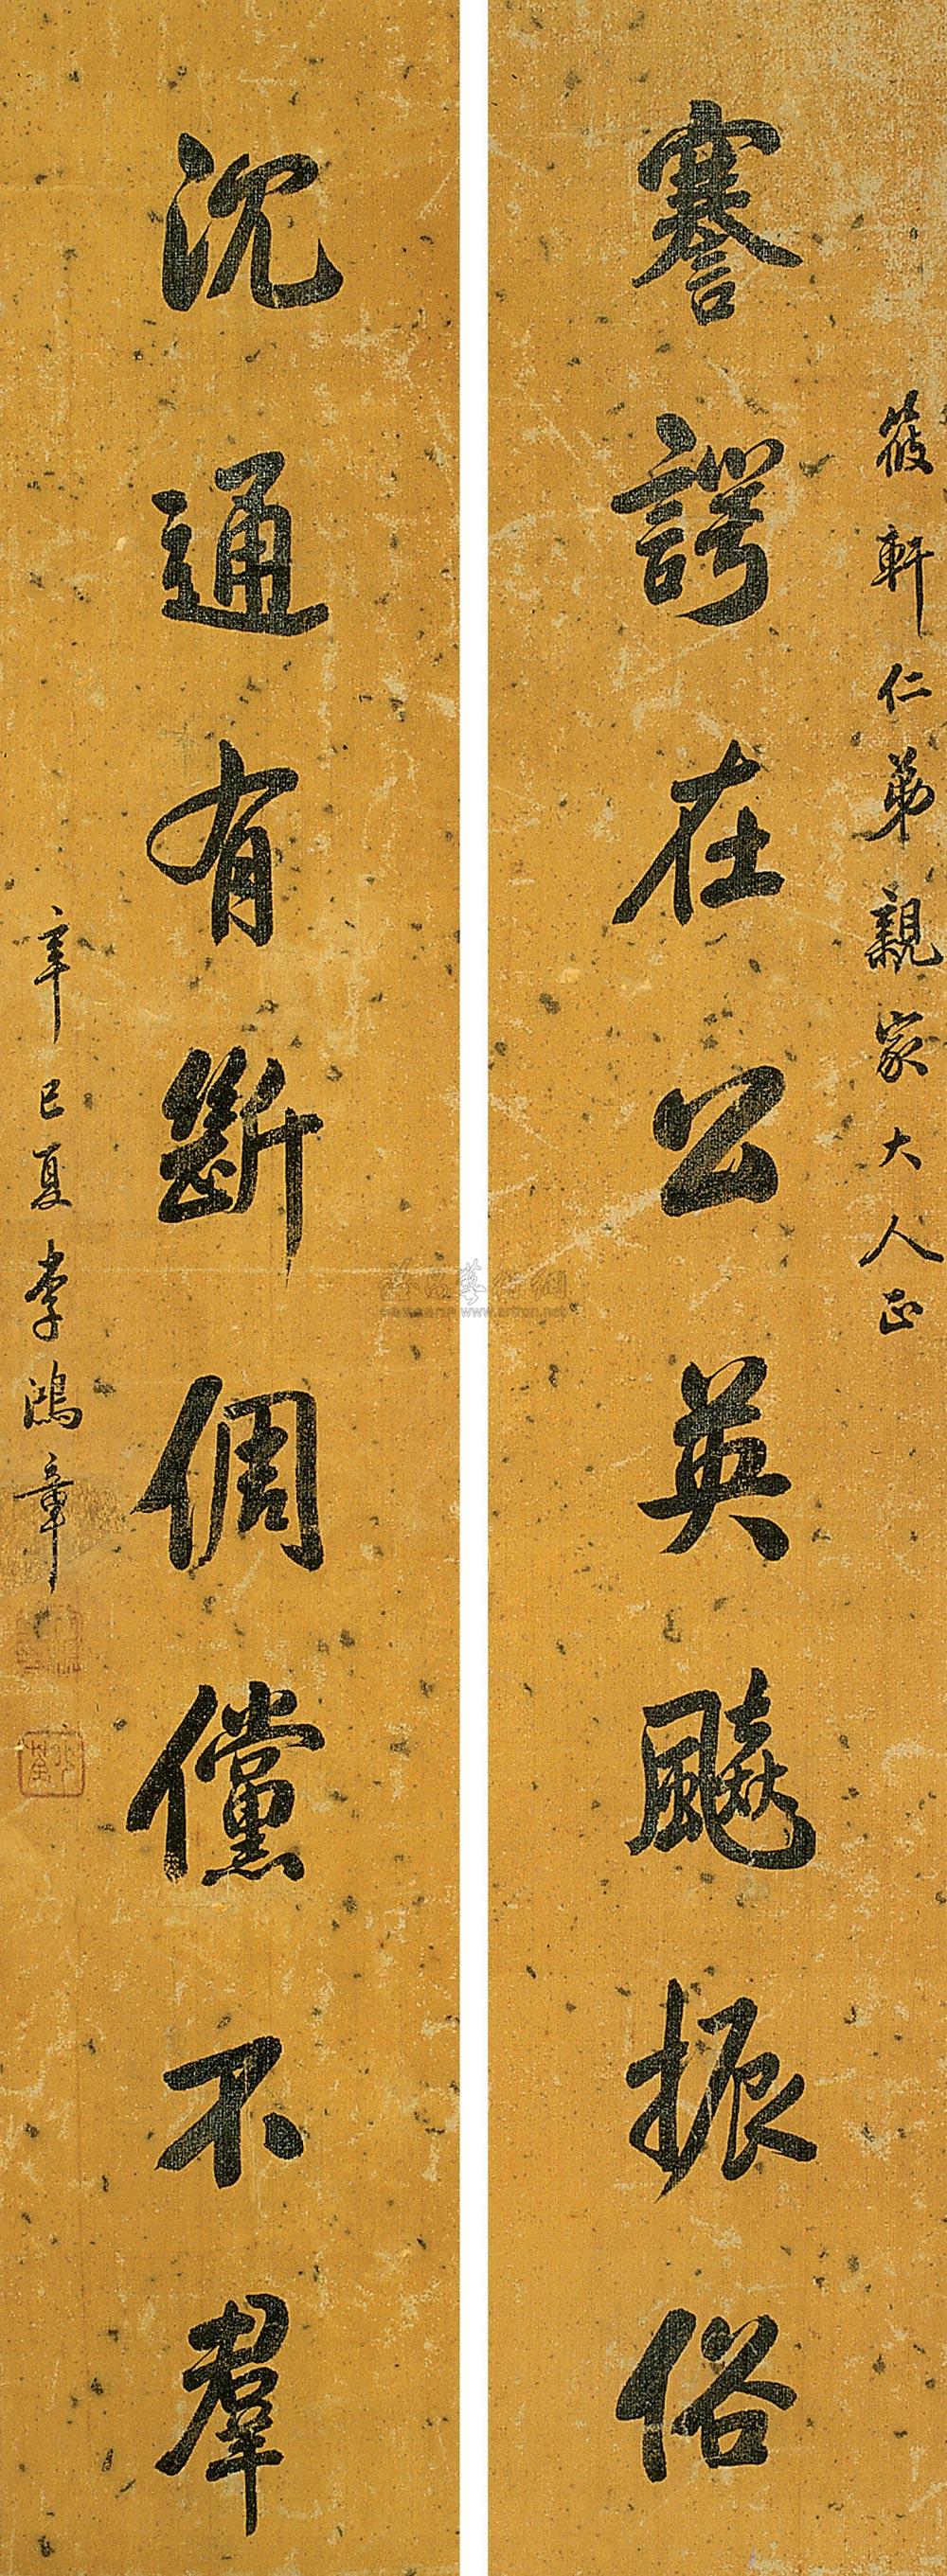 筱軒仁弟親家大人正
謇諤在公英飈振俗
沉通有斷倜儻不羣
辛巳夏李鴻章
www.artron.net